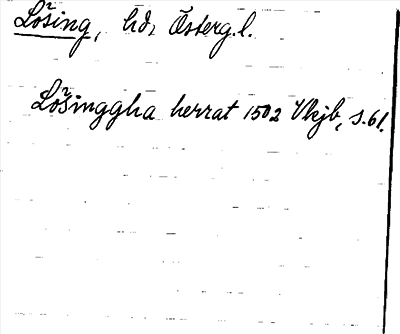 Lösing, hd, Österg.l.
Lösinggha herrat 1502 Vkjb, s.61.